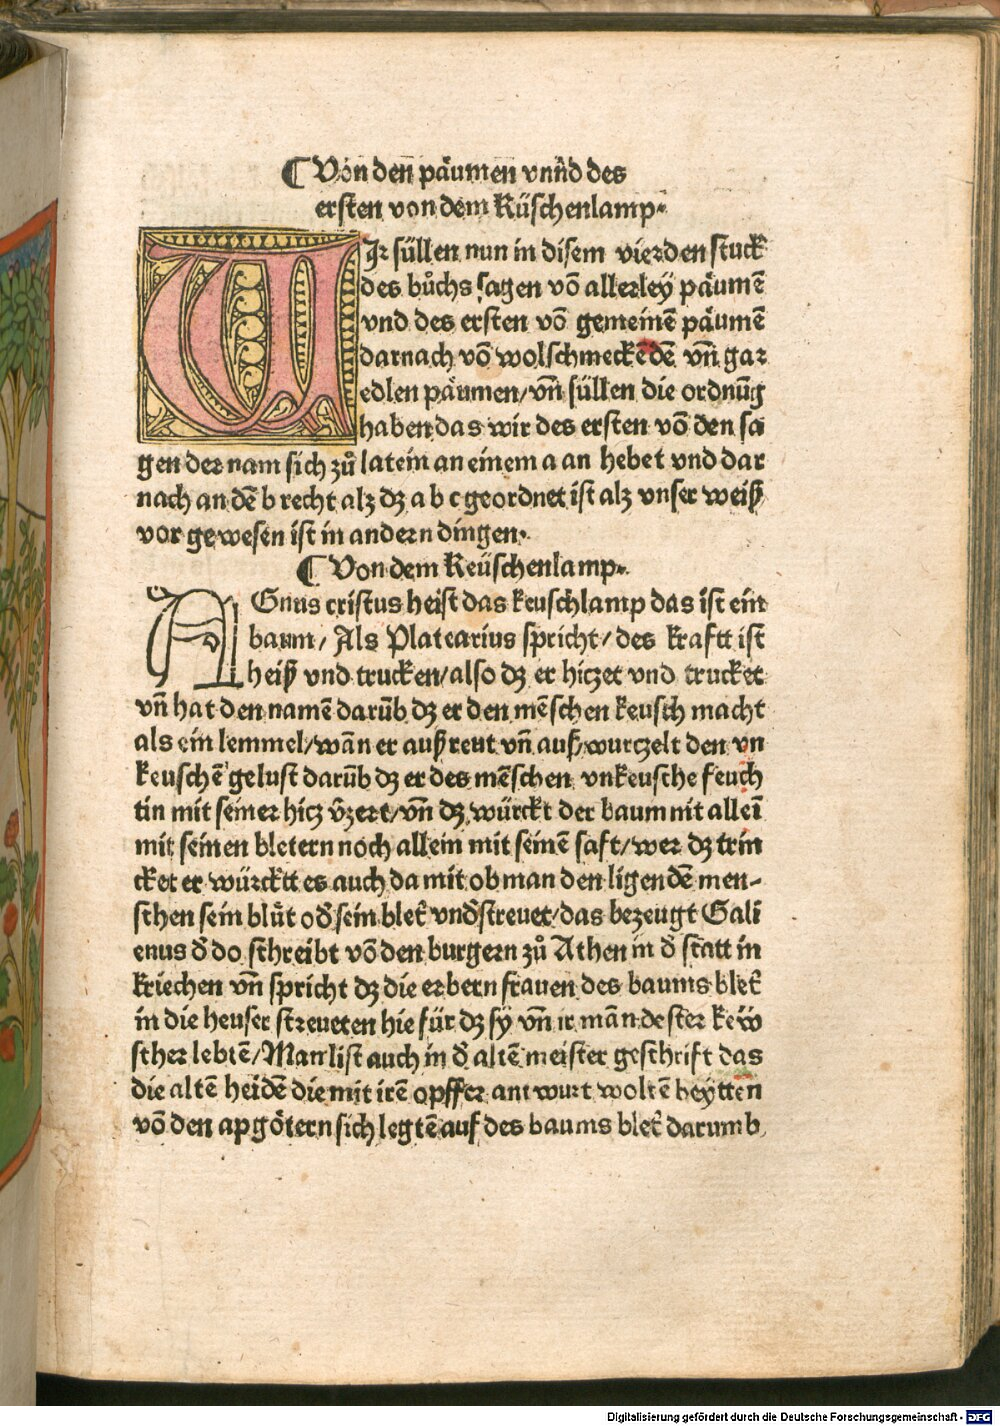 ¶ Von den päumen vnnd des
ersten von dem Küschenlamp.
WIr süllen nun in disem vierden stuck
des bůchs sagen võ allerley päumẽ
vnd des ersten võ gemeinẽ päumẽ
darnach võ wolschmeckẽdẽ vñ gar
edlen päumen/vñ süllen die ordnũg
haben das wir des ersten võ den sa
gen der nam sich zů latein an einem a an hebet vnd dar
nach an dẽ b recht alz dz a b c geordnet ist alz vnser weiß
vor gewesen ist in andern dingen.
¶ Von dem Keüschenlamp.
AGnus cristus heist das keuschlamp das ist ein
baum/ Als Platearius spricht/ des krafft ist
heiß vnd trucken/also dz er hiczet vnd trucket
vñ hat den namẽ darũb dz er den mẽschen keusch macht
als ein lemmel/wãn er außreut vñ auß wurczelt den vn
keuschẽ gelust darũb dz er des mẽschen vnkeusche feuch
tin mit seiner hicz ṽzert/vñ dz würckt der baum nit alleĩ
mit seinen bletern noch allein mit seinẽ saft/wer dz trin
cket er würcktt es auch da mit ob man den ligendẽ men-
schen sein blüt od̃ sein blet̃ vnd̃streuet/das bezeugt Gali
enus d̃ do schreibt võ den burgern zů Athen in d̃ statt in
kriechen vñ spricht dz die erbern frauen des baums blet̃
in die heuser streueten hie für dz sy vñ ir mãn dester keü
scher lebtẽ/Man list auch in d̃ altẽ meister geschrift das
die altẽ heidẽ die mit irẽ opffer antwurt woltẽ beytten
võ den apgötern sich legtẽ auf des baums blet̃ darumb
Digitalisierung gefördert durch die Deutsche Forschungsgemeinschaft - DFG